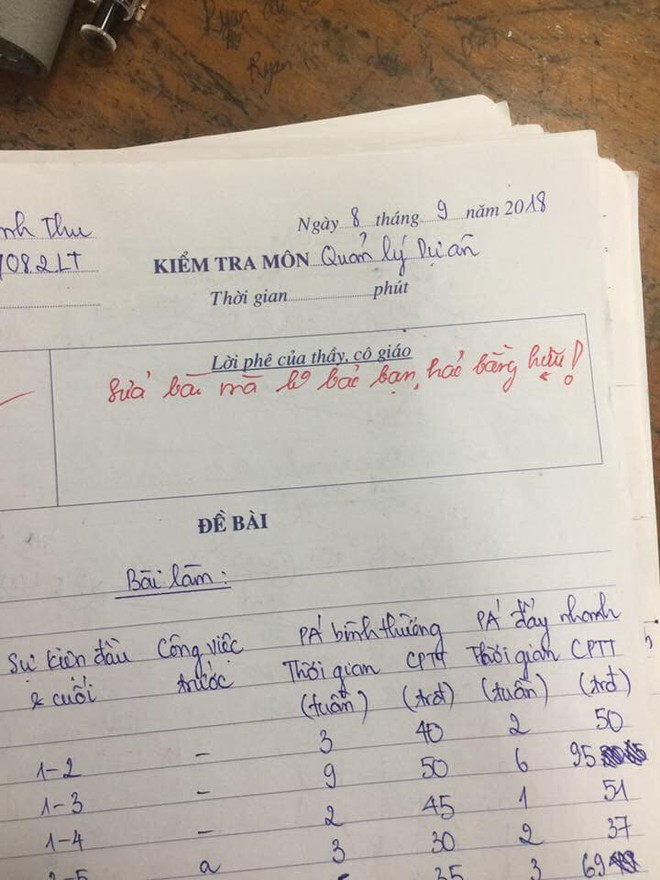 Ryan
Ryan
nh Thu
Ngày 8 tháng 9 năm 2018
1082LT
KIỂM TRA MÔN Quản lý Dự án
Thời gian phút
Lời phê của thầy, cô giáo
Sửa bài mà ko bảo bạn, hảo bằng hữu!
ĐỀ BÀI
Bài làm:
Sự kiện đầu & cuối
Công việc trước
PA bình thường
PA đẩy nhanh
Thời gian (tuần)
CPTT (trđ)
Thời gian (tuần)
CPTT (trđ)
1-2 - 3 40 2 50
1-3 - 9 50 6 95
1-4 - 2 45 1 51
2-5 a 3 30 2 37
35 3 69